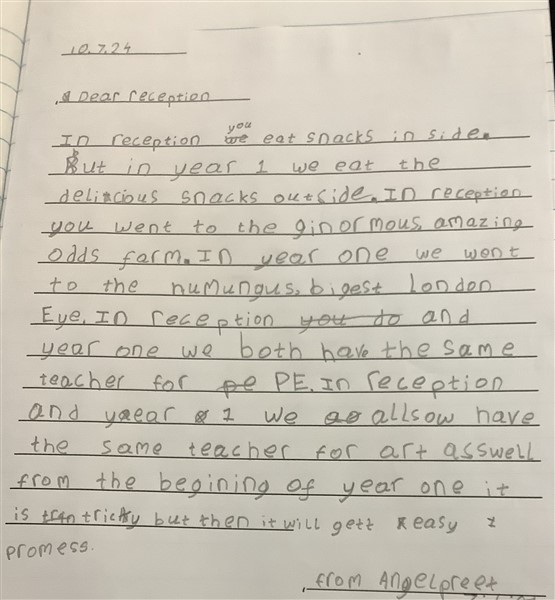 10.7.24
Dear reception
In reception you eat snacks in side.
But in year 1 we eat the
delitcious snacks outside. In reception
you went to the ginormous, amazing
Odds farm. In year one we went
to the humungus, bigest London
Eye. In reception you do and
year one we both have the same
teacher for pe PE. In reception
and year 1 we ao allsow have
the same teacher for art asswell
from the begining of year one it
is tricky but then it will gett easy I
promess.
from Angelpreet